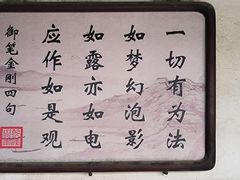 一切有为法
如梦幻泡影
如露亦如电
应作如是观
御笔金刚四句